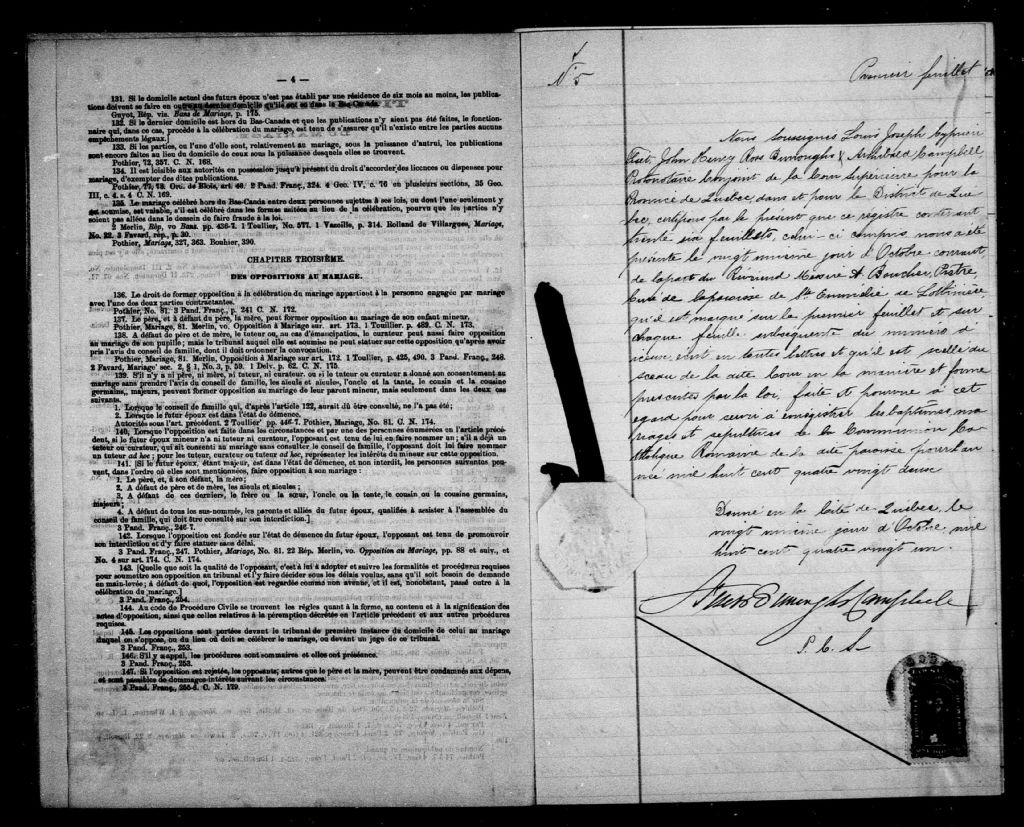 — 4 —
131. Si le domicile actuel des futurs époux n'est pas établi par une résidence de six mois au moins, les publica-
tions doivent se faire en outre au dernier domicile qu'ils ont eu dans le Bas-Canada.
Guyot, Rép. vis. Bans de Mariage, p. 175.
132. Si le dernier domicile est hors du Bas-Canada et que les publications n'y aient pas été faites, le fonction-
naire qui, dans ce cas, procède à la célébration du mariage, est tenu de s'assurer qu'il n'existe entre les parties aucuns
empêchements légaux.
133. Si les parties, ou l'une d'elle sont, relativement au mariage, sous la puissance d'autrui, les publications
sont encore faites au lieu du domicile de ceux sous la puissance desquels elles se trouvent.
Pothier, 72, 357. C. N. 168.
134. Il est loisible aux autorités en possession jusqu'à présent du droit d'accorder des licences ou dispenses pour
mariage, d'exempter des dites publications.
Pothier, 77, 78. Ord. de Blois, art. 40. 2 Pand. Franç., 324. 4 Geo. IV, c. 76 en plusieurs sections, 35 Geo.
III, c. 4, s. 4 C. N. 169.
135. Le mariage célébré hors du Bas-Canada entre deux personnes sujettes à ses lois, ou dont l'une seulement y
est soumise, est valable, s'il est célébré dans les formes usitées au lieu de la célébration, pourvu que les parties n'y
soient pas allées dans le dessein de faire fraude à la loi.
2 Merlin, Rép, vo Bans. pp. 436-7. 1 Toullier, No. 577. 1 Vazeille, p. 314. Rolland de Villargues, Mariage,
No. 22. 3 Favard, rép., p. 30.
Pothier, Mariage, 327, 363. Bouhier, 390.
CHAPITRE TROISIÈME.
DES OPPOSITIONS AU MARIAGE.
136. Le droit de former opposition à la célébration du mariage appartient à la personne engagée par mariage
avec l'une des deux parties contractantes.
Pothier, No. 81. 3 Pand. Franç., p. 241 C. N. 172.
137. Le père, et à défaut du père, la mère, peut former opposition au mariage de son enfant mineur.
Pothier, Mariage, 81. Merlin, vo. Opposition à Mariage sur. art. 173. 1 Touillier, p. 489. C. N. 173.
138. A défaut de père et de mère, le tuteur ou, au cas d'émancipation, le curateur peut aussi faire opposition
au mariage de son pupille; mais le tribunal auquel elle est soumise ne peut statuer sur cette opposition qu'après avoir
pris l'avis du conseil de famille, dont il doit ordonner la convocation.
Pothier, Mariage, 81. Merlin, Opposition à Mariage sur art. 172. 1 Toullier, p. 425, 490. 3 Pand. Franç., 248.
2 Favard, Mariage' sec. 2, § 1, No. 3, p. 59. 1 Delv. p. 62. C. N. 175.
139. S'il n'y a ni père, ni mère, ni tuteur, ni curateur, ou si le tuteur ou curateur a donné son consentement au
mariage sans prendre l'avis du conseil de famille, les aïeuls et aïeules, l'oncle et la tante, le cousin et la cousine
germains, majeurs, peuvent former opposition au mariage de leur parent mineur, mais seulement dans les deux cas
suivants.
1. Lorsque le conseil de famille qui, d'après l'article 122, aurait dû être consulté, ne l'a pas été;
2. Lorsque le futur époux est dans l'état de démence.
Autorités sous l'art. précédent. 2 Toullier' pp. 446-7. Pothier, Mariage, No. 81. C. N. 174.
140. Lorsque opposition est faite dans les circonstances et par une des personnes énumérées en l'article précé-
dent, si le futur époux mineur n'a ni tuteur ni curateur, l'opposant est tenu de lui en faire nommer un; s'il a déjà un
tuteur ou curateur, qui ait consenti au mariage sans consulter le conseil de famille, l'opposant doit lui faire nommer
un tuteur ad hoc; pour les tuteur, curateur ou tuteur ad hoc, représenter les intérêts du mineur sur cette opposition.
141. [Si le futur époux, étant majeur, est dans l'état de démence, et non interdit, les personnes suivantes peu-
vent, dans l'ordre où elles sont mentionnées, faire opposition à son mariage:
1. Le père, et, à son défaut, la mère;
2. A défaut de père et de mère, les aïeuls et aïeules;
3. A défaut de ces derniers, le frère ou la sœur, l'oncle ou la tante, le cousin ou la cousine germains,
majeurs;
4. A défaut de tous les sus-nommés, les parents et alliés du futur époux, qualifiés à assister à l'assemblée du
conseil de famille, qui doit être consulté sur son interdiction.]
3 Pand. Franç., 246-7.
142. Lorsque l'opposition est fondée sur l'état de démence du futur époux, l'opposant est tenu de promouvoir
son interdiction et d'y faire statuer sans délai.
3 Pand. Franç., 247. Pothier, Mariage, No. 81. 22 Rép. Merlin, vo. Opposition au Mariage, pp. 88 et suiv., et
No. 4 sur art. 174. C. N. 174.
143. [Quelle que soit la qualité de l'opposant, c'est à lui à adopter et suivre les formalités et procédures requises
pour soumettre son opposition au tribunal et l'y faire décider sous les délais voulus, sans qu'il soit besoin de demande
en main-levée; à défaut de quoi, l'opposition est regardée comme non avenue, et il est, nonobstant, passé outre à la
célébration du mariage.]
3 Pand. Franç., 254.
144. Au code de Procédure Civile se trouvent les règles quant à la forme, au contenu et à la signification des
actes d'opposition, ainsi que celles relatives à la péremption décrétée en l'article précédent et aux autres procédures
requises.
145. Les oppositions sont portées devant le tribunal de première instance du domicile de celui au mariage
duquel on s'oppose, ou du lieu où doit se célébrer le mariage, ou devant un juge de ce tribunal.
3 Pand. Franç., 253.
146. S'il y a appel, les procédures sont sommaires et elles ont préséance.
3 Pand. Franç., 253.
147. Si l'opposition est rejetée, les opposants, autres que le père et la mère, peuvent être condamnés aux dépens,
et sont passibles de dommages-intérêts suivant les circonstances.
3 Pand. Franç., 255-6. C. N. 179.
N° 5
Premier feuillet
Nous soussignés Louis Joseph Cyprien
Fiset, John Henry Ross Burroughs & Archibald Campbell
Protonotaire Conjoint de la Cour Supérieure pour la
Province de Québec, dans et pour le District de Qué-
bec, certifions par le présent que ce registre contenant
trente six feuillets, celui-ci compris, nous a été
présenté le vingt unième jour d'Octobre courant,
de la part du Révérend Messire A. Boucher, Prêtre,
Curé de la paroisse de Ste Emmélie de Lotbinière
qu'il est marqué sur le premier feuillet et sur
chaque feuillet subséquent du numéro d'
icelui écrit en toutes lettres et qu'il est scellé du
sceau de la dite Cour en la manière et forme
prescrites par la loi, faite et pourvue à cet
égard pour servir à enregistrer les baptêmes, ma-
riages et sépultures de la Communion Ca-
tholique Romaine de la dite paroisse pour l'an-
née mil huit cent quatre vingt deux
Donné en la Cité de Québec, le
vingt unième jour d'Octobre, mil
huit cent quatre vingt un.
Fiset Burroughs Campbell
P. C. S.